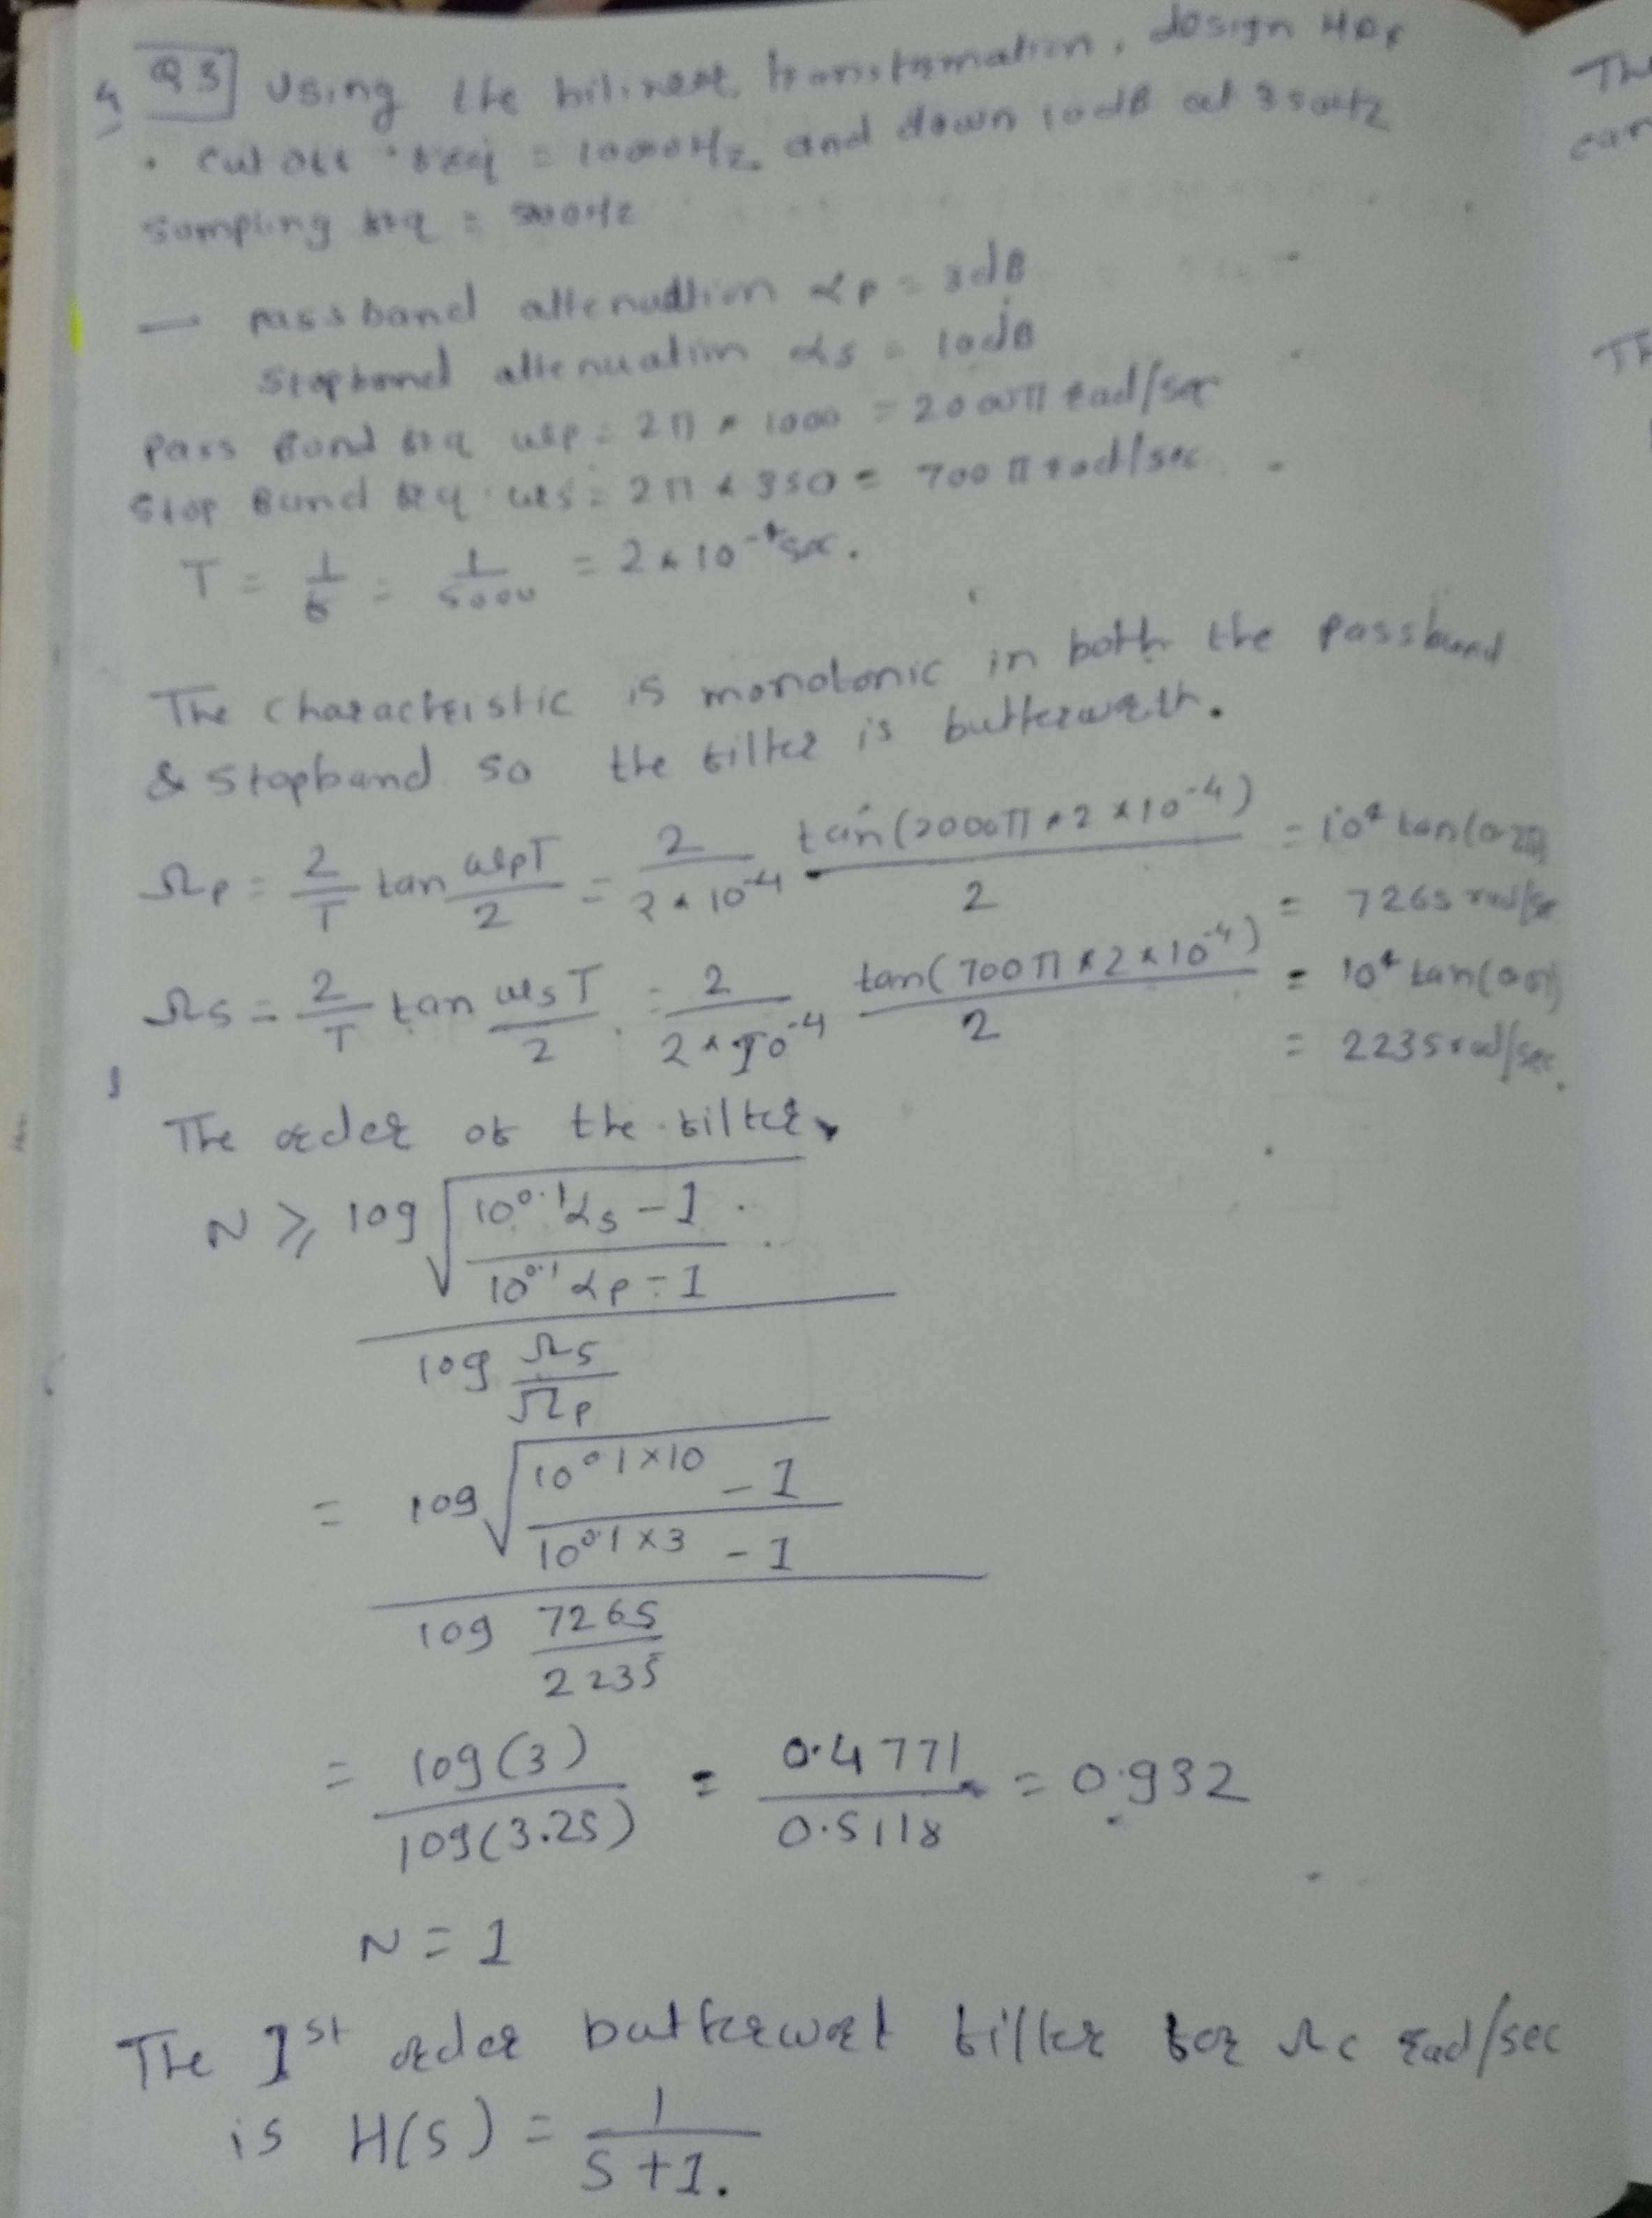 4 Q3] Using the bilinear transformation, design HPF
• cut off freq = 1000Hz and down 10dB at 350Hz
sampling frq = 5000Hz
— passband attenuation αp = 3dB
stopband attenuation αs = 10dB
Pass Band frq wp = 2π * 1000 = 2000π rad/sec
Stop Band frq ws = 2π * 350 = 700π rad/sec
T = 1/f = 1/5000 = 2*10^-4 sec.
The characteristic is monotonic in both the passband
& stopband so the filter is butterworth.
Ωp = 2/T tan wpT/2 = 2/(2*10^-4) tan(2000π*2*10^-4)/2 = 10^4 tan(0.2π)
= 7265 rad/se
Ωs = 2/T tan wsT/2 = 2/(2*10^-4) tan(700π*2*10^-4)/2 = 10^4 tan(
= 2235 rad/sec.
The order of the filter
N ≥ log √((10^0.1αs - 1)/(10^0.1αp - 1))
log Ωs/Ωp
= log √((10^0.1×10 - 1)/(10^0.1×3 - 1))
log 7265/2235
= log(3)/log(3.25) = 0.4771/0.5118 = 0.932
N = 1
The 1st order butterwort filter for Ωc rad/sec
is H(s) = 1/(s+1).
Th
can
Th